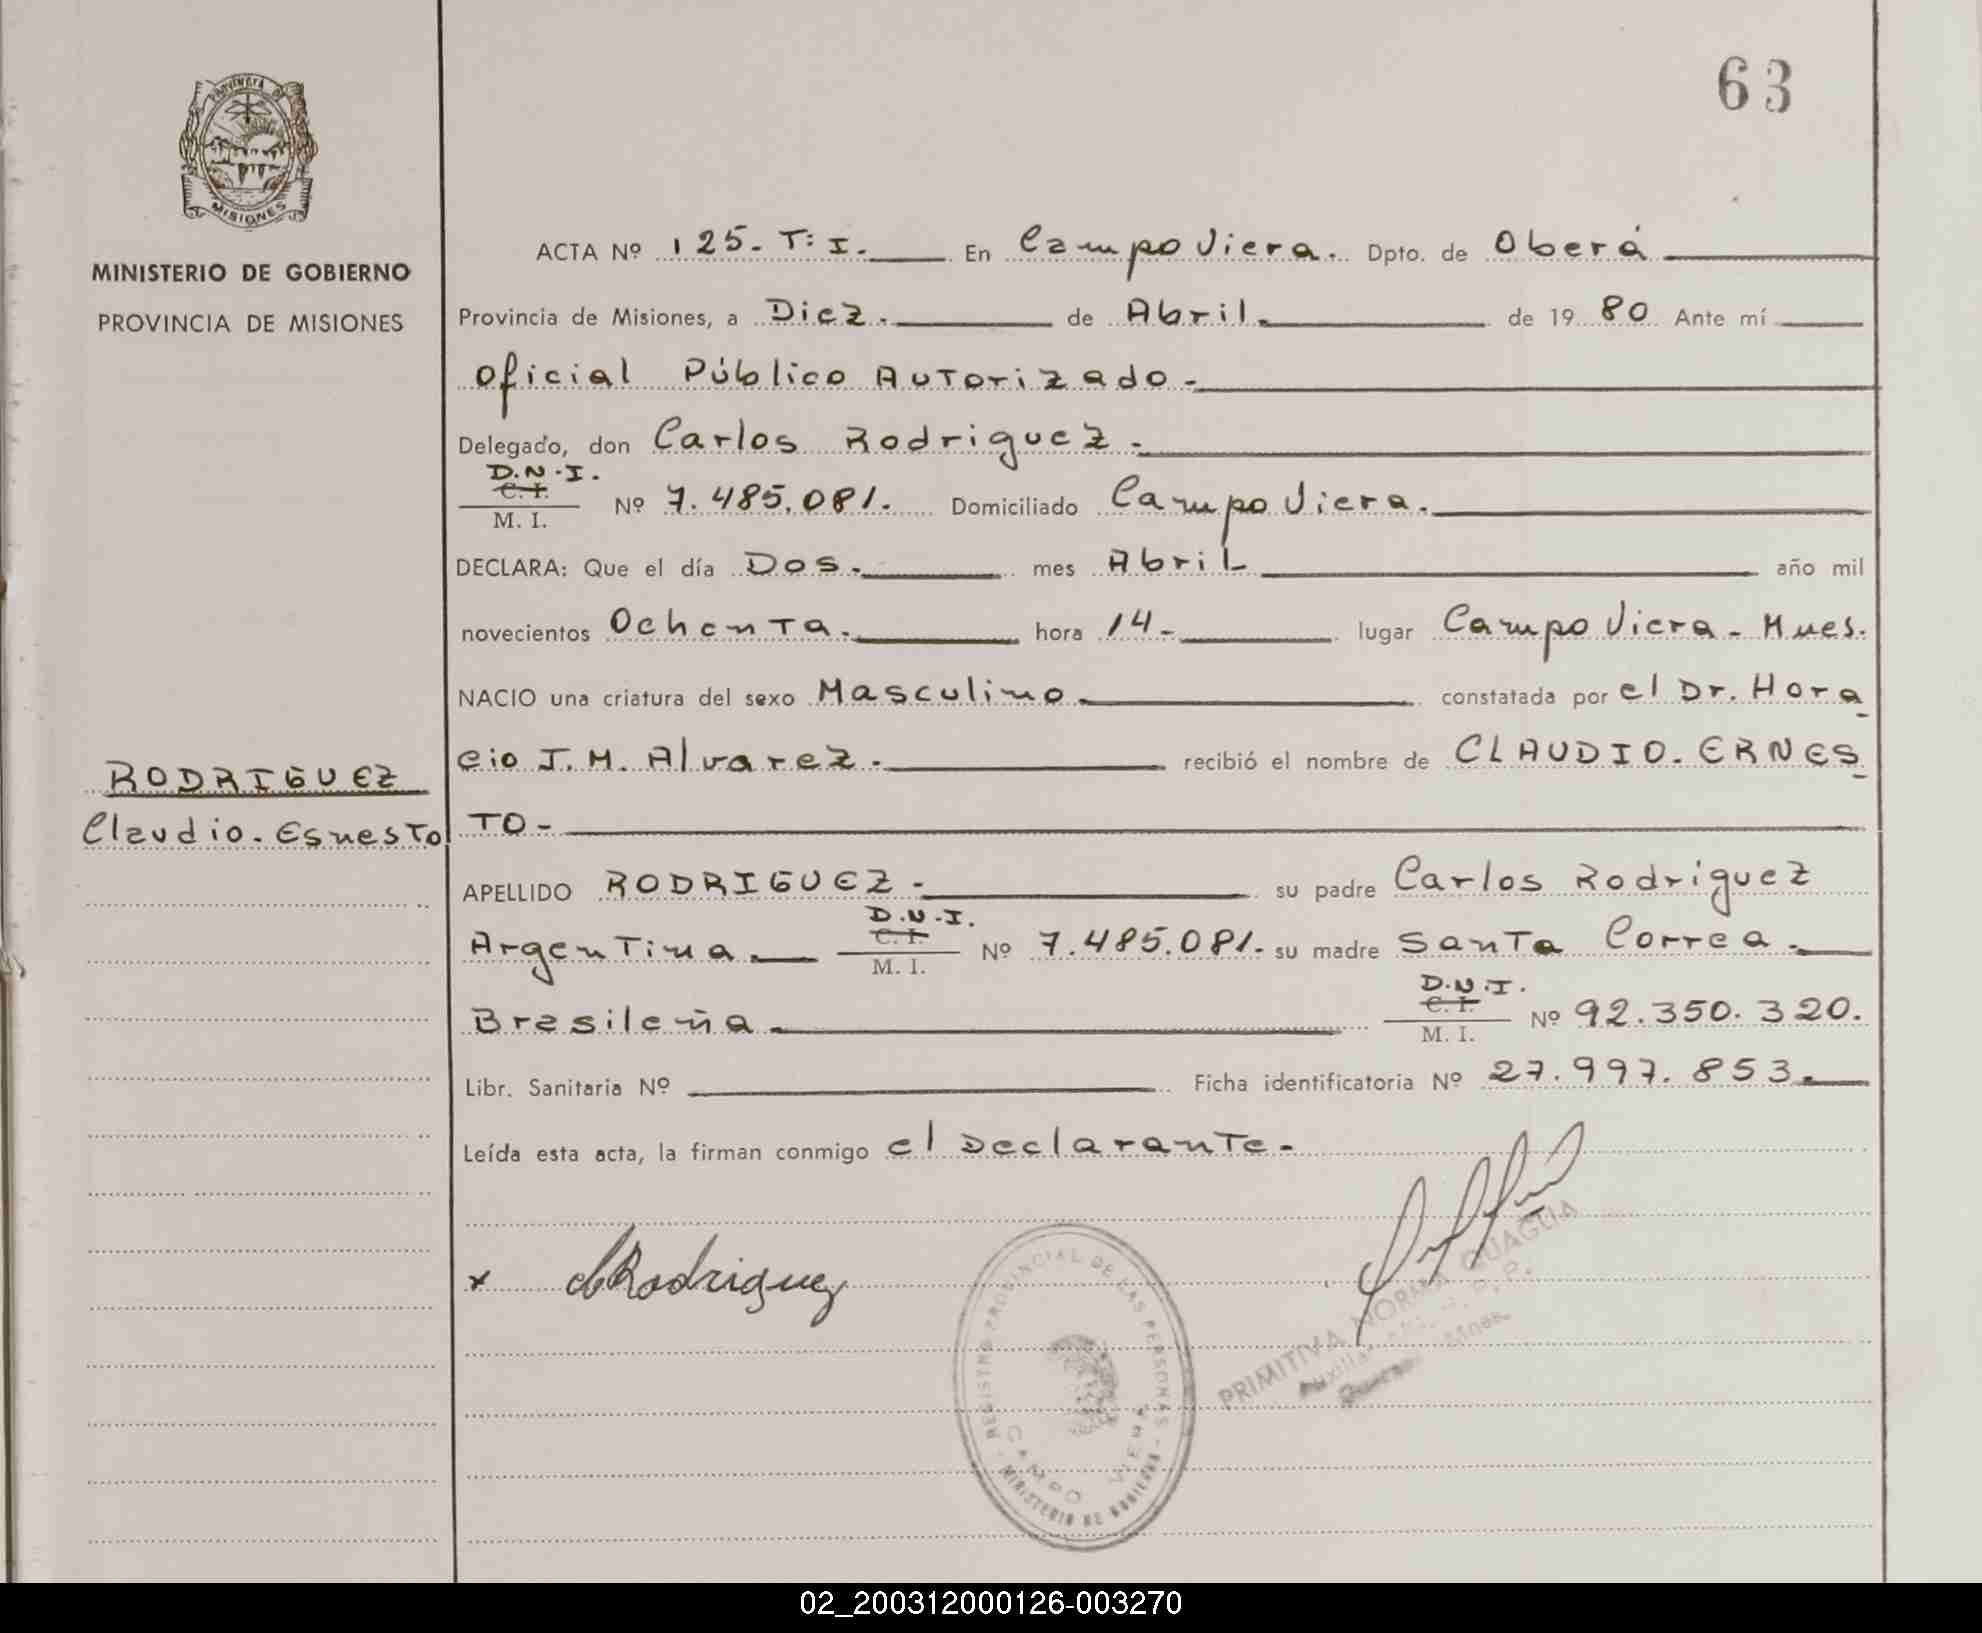 63
PROVINCIA DE
MISIONES
MINISTERIO DE GOBIERNO
PROVINCIA DE MISIONES
ACTA Nº 125. T: I. En Campo Viera. Dpto. de Oberá
Provincia de Misiones, a Diez. de Abril. de 1980 Ante mí
Oficial Público Autorizado.
Delegado, don Carlos Rodriguez.
D.N.I.
C. I.
M. I. Nº 7.485.081. Domiciliado Campo Viera.
DECLARA: Que el día Dos. mes Abril año mil
novecientos Ochenta. hora 14- lugar Campo Viera - Mnes.
NACIO una criatura del sexo Masculino constatada por el Dr. Hora
cio J. M. Alvarez. recibió el nombre de CLAUDIO. ERNES
TO-
RODRIGUEZ
Claudio. Esnesto
APELLIDO RODRIGUEZ. su padre Carlos Rodriguez
D.N.I.
C. I.
Argentina M. I. Nº 7.485.081. su madre Santa Correa.
D.N.I.
C. I.
Brasileña M. I. Nº 92.350.320.
Libr. Sanitaria Nº Ficha identificatoria Nº 27.997.853.
Leída esta acta, la firman conmigo el Declarante.
x CRodriguez
REGISTRO PROVINCIAL DE LAS PERSONAS
CAMPO VIERA
MINISTERIO DE GOBIERNO
PRIMITIVA NORMA QUAGLIA
02_200312000126-003270